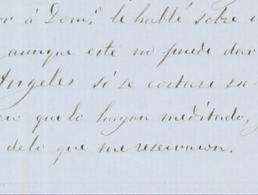 or à Dom.º le hablé sobre
aunque este no puede dar
Angeles si se cortase su
que lo hayan meditado,
de lo que me reservaron.